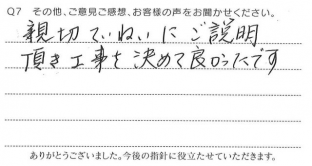 Q7 その他、ご意見ご感想、お客様の声をお聞かせください。
親切ていねいにご説明
頂き工事を決めて良かったです
ありがとうございました。今後の指針に役立たせていただきます。